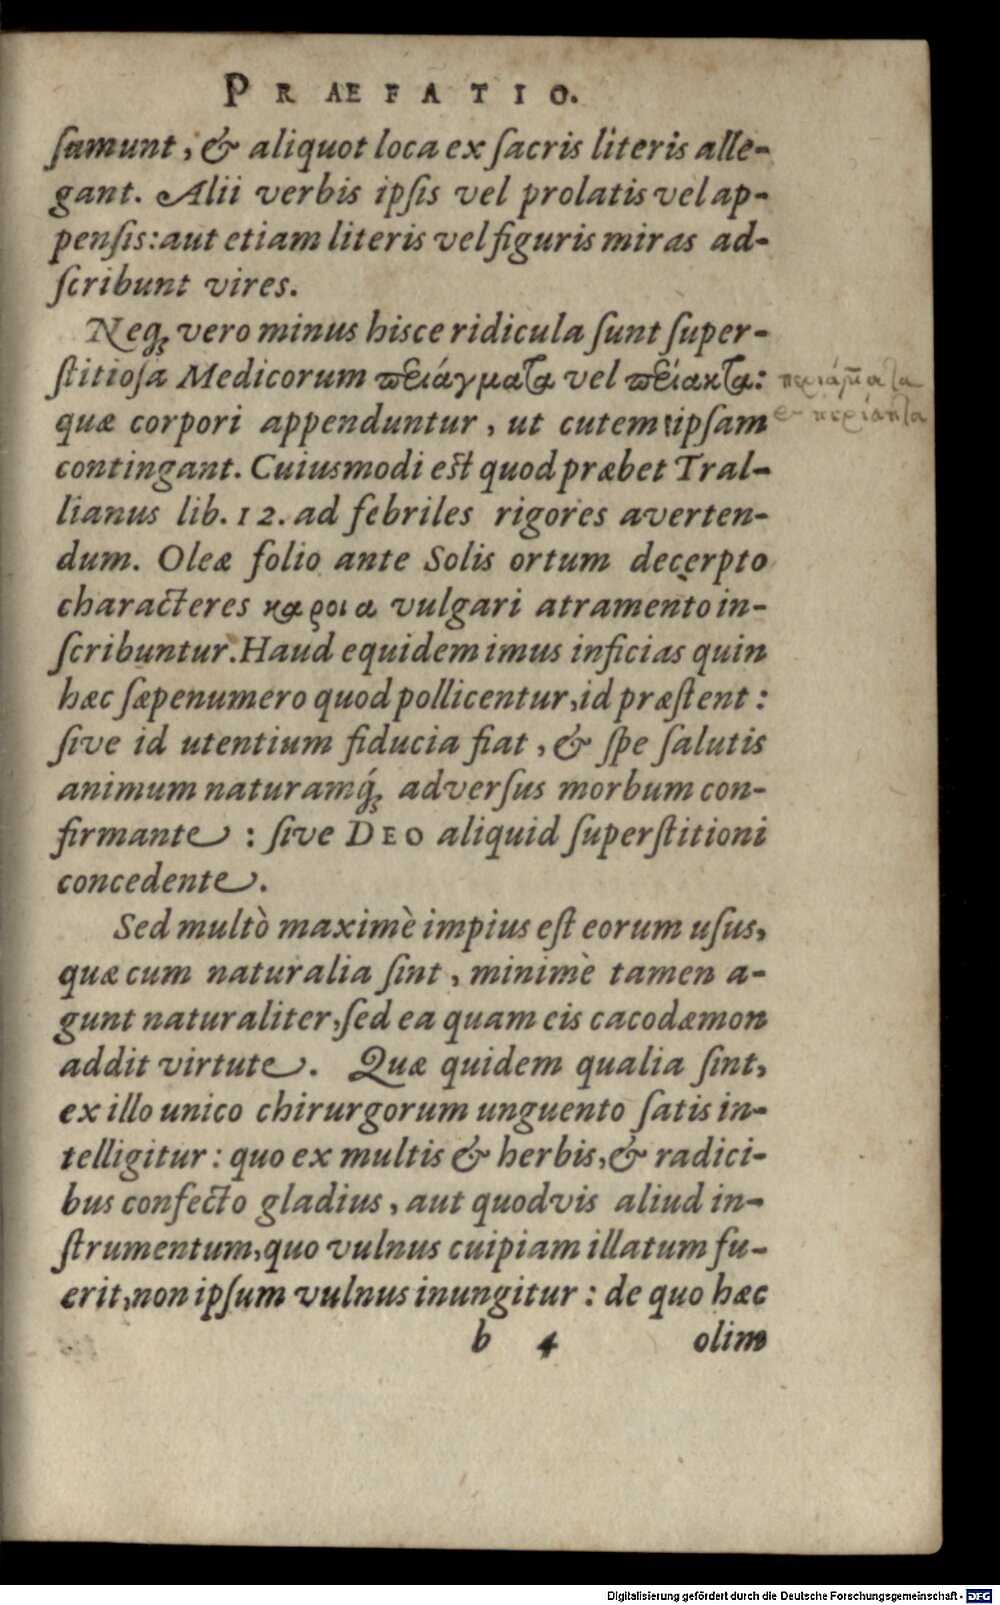 PRÆFATIO.
ſamunt, & aliquot loca ex ſacris literis alle-
gant. Alii verbis ipſis vel prolatis vel ap-
penſis: aut etiam literis vel figuris miras ad-
ſcribunt vires.
Neq́ꝫ vero minus hisce ridicula ſunt ſuper-
ſtitioſa Medicorum περιάγματα vel περίακτα:
quæ corpori appenduntur, ut cutem ipſam
contingant. Cuiusmodi eſt quod præbet Tral-
lianus lib. 12. ad febriles rigores averten-
dum. Oleæ folio ante Solis ortum decerpto
characteres κα ροι α vulgari atramento in-
ſcribuntur. Haud equidem imus inficias quin
hæc ſæpenumero quod pollicentur, id præſtent:
ſive id utentium fiducia fiat, & ſpe ſalutis
animum naturamq́ꝫ adverſus morbum con-
firmante: ſive DEO aliquid ſuperſtitioni
concedente.
Sed multò maximè impius eſt eorum uſus,
quæ cum naturalia ſint, minimè tamen a-
gunt naturaliter, ſed ea quam eis cacodæmon
addit virtute. Quæ quidem qualia ſint,
ex illo unico chirurgorum unguento ſatis in-
telligitur: quo ex multis & herbis, & radici-
bus confecto gladius, aut quodvis aliud in-
ſtrumentum, quo vulnus cuipiam illatum fu-
erit, non ipſum vulnus inungitur: de quo hæc
b 4 olim
περιάγματα
& περίαπτα
Digitalisierung gefördert durch die Deutsche Forschungsgemeinschaft - DFG